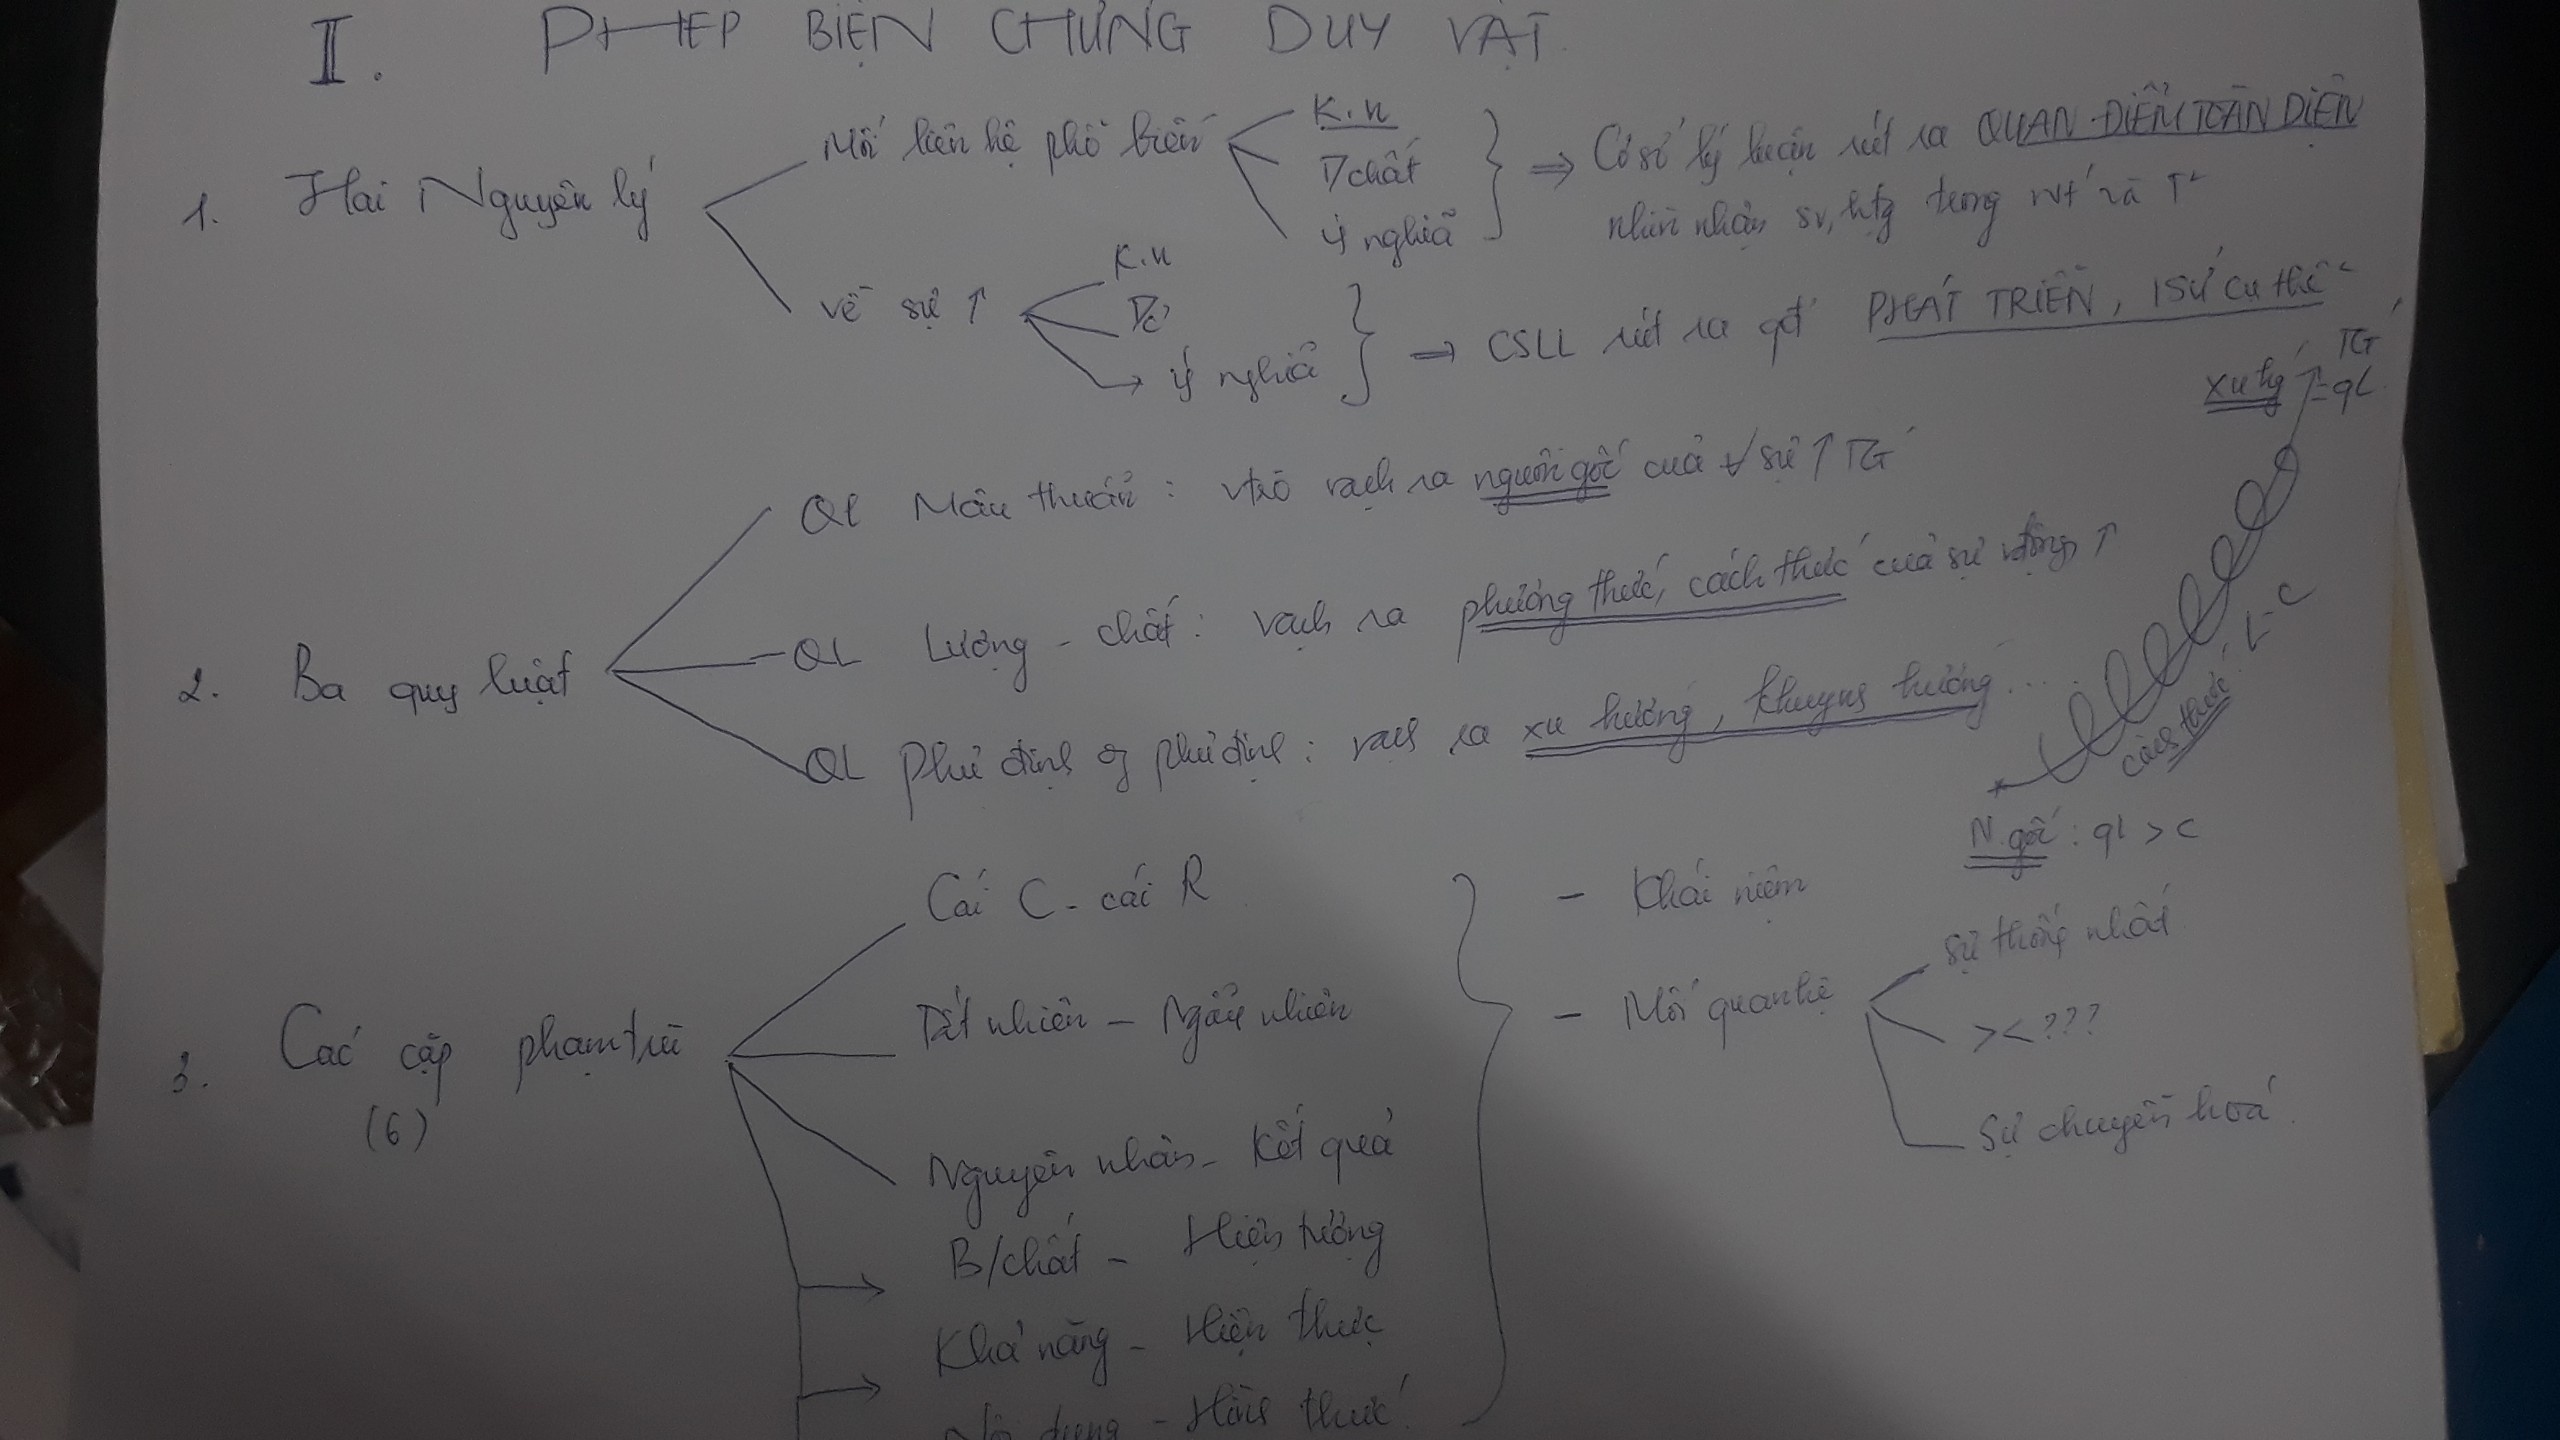 II. PHÉP BIỆN CHỨNG DUY VẬT
1. Hai Nguyên lý
Mối liên hệ phổ biến
K.n
T/chất
Ý nghĩa
=> Cơ sở lý luận rút ra QUAN ĐIỂM TOÀN DIỆN
nhìn nhận sv, htg trong
về sự ↑
K.n
T/c
Ý nghĩa
=> CSLL rút ra qđ PHÁT TRIỂN, lsử cụ thể
xu hg ↑ TG
- qL
2. Ba quy luật
QL Mâu thuẫn : vtrò vạch ra nguồn gốc của ∀ sự ↑ TG
QL Lượng - chất : vạch ra phương thức, cách thức của sự vđộng, ↑
QL Phủ định of phủ định : vạch ra xu hướng, khuynh hướng ...
cách thức : L-C
N.gốc : ql > <
3. Các cặp phạm trù
(6)
Cái C - cái R
Tất nhiên - Ngẫu nhiên
Nguyên nhân - Kết quả
B/chất - Hiện tượng
Khả năng - Hiện thực
Nội dung - Hình thức
- Khái niệm
- Mối quan hệ
Sự thống nhất
> < ???
Sự chuyển hoá.